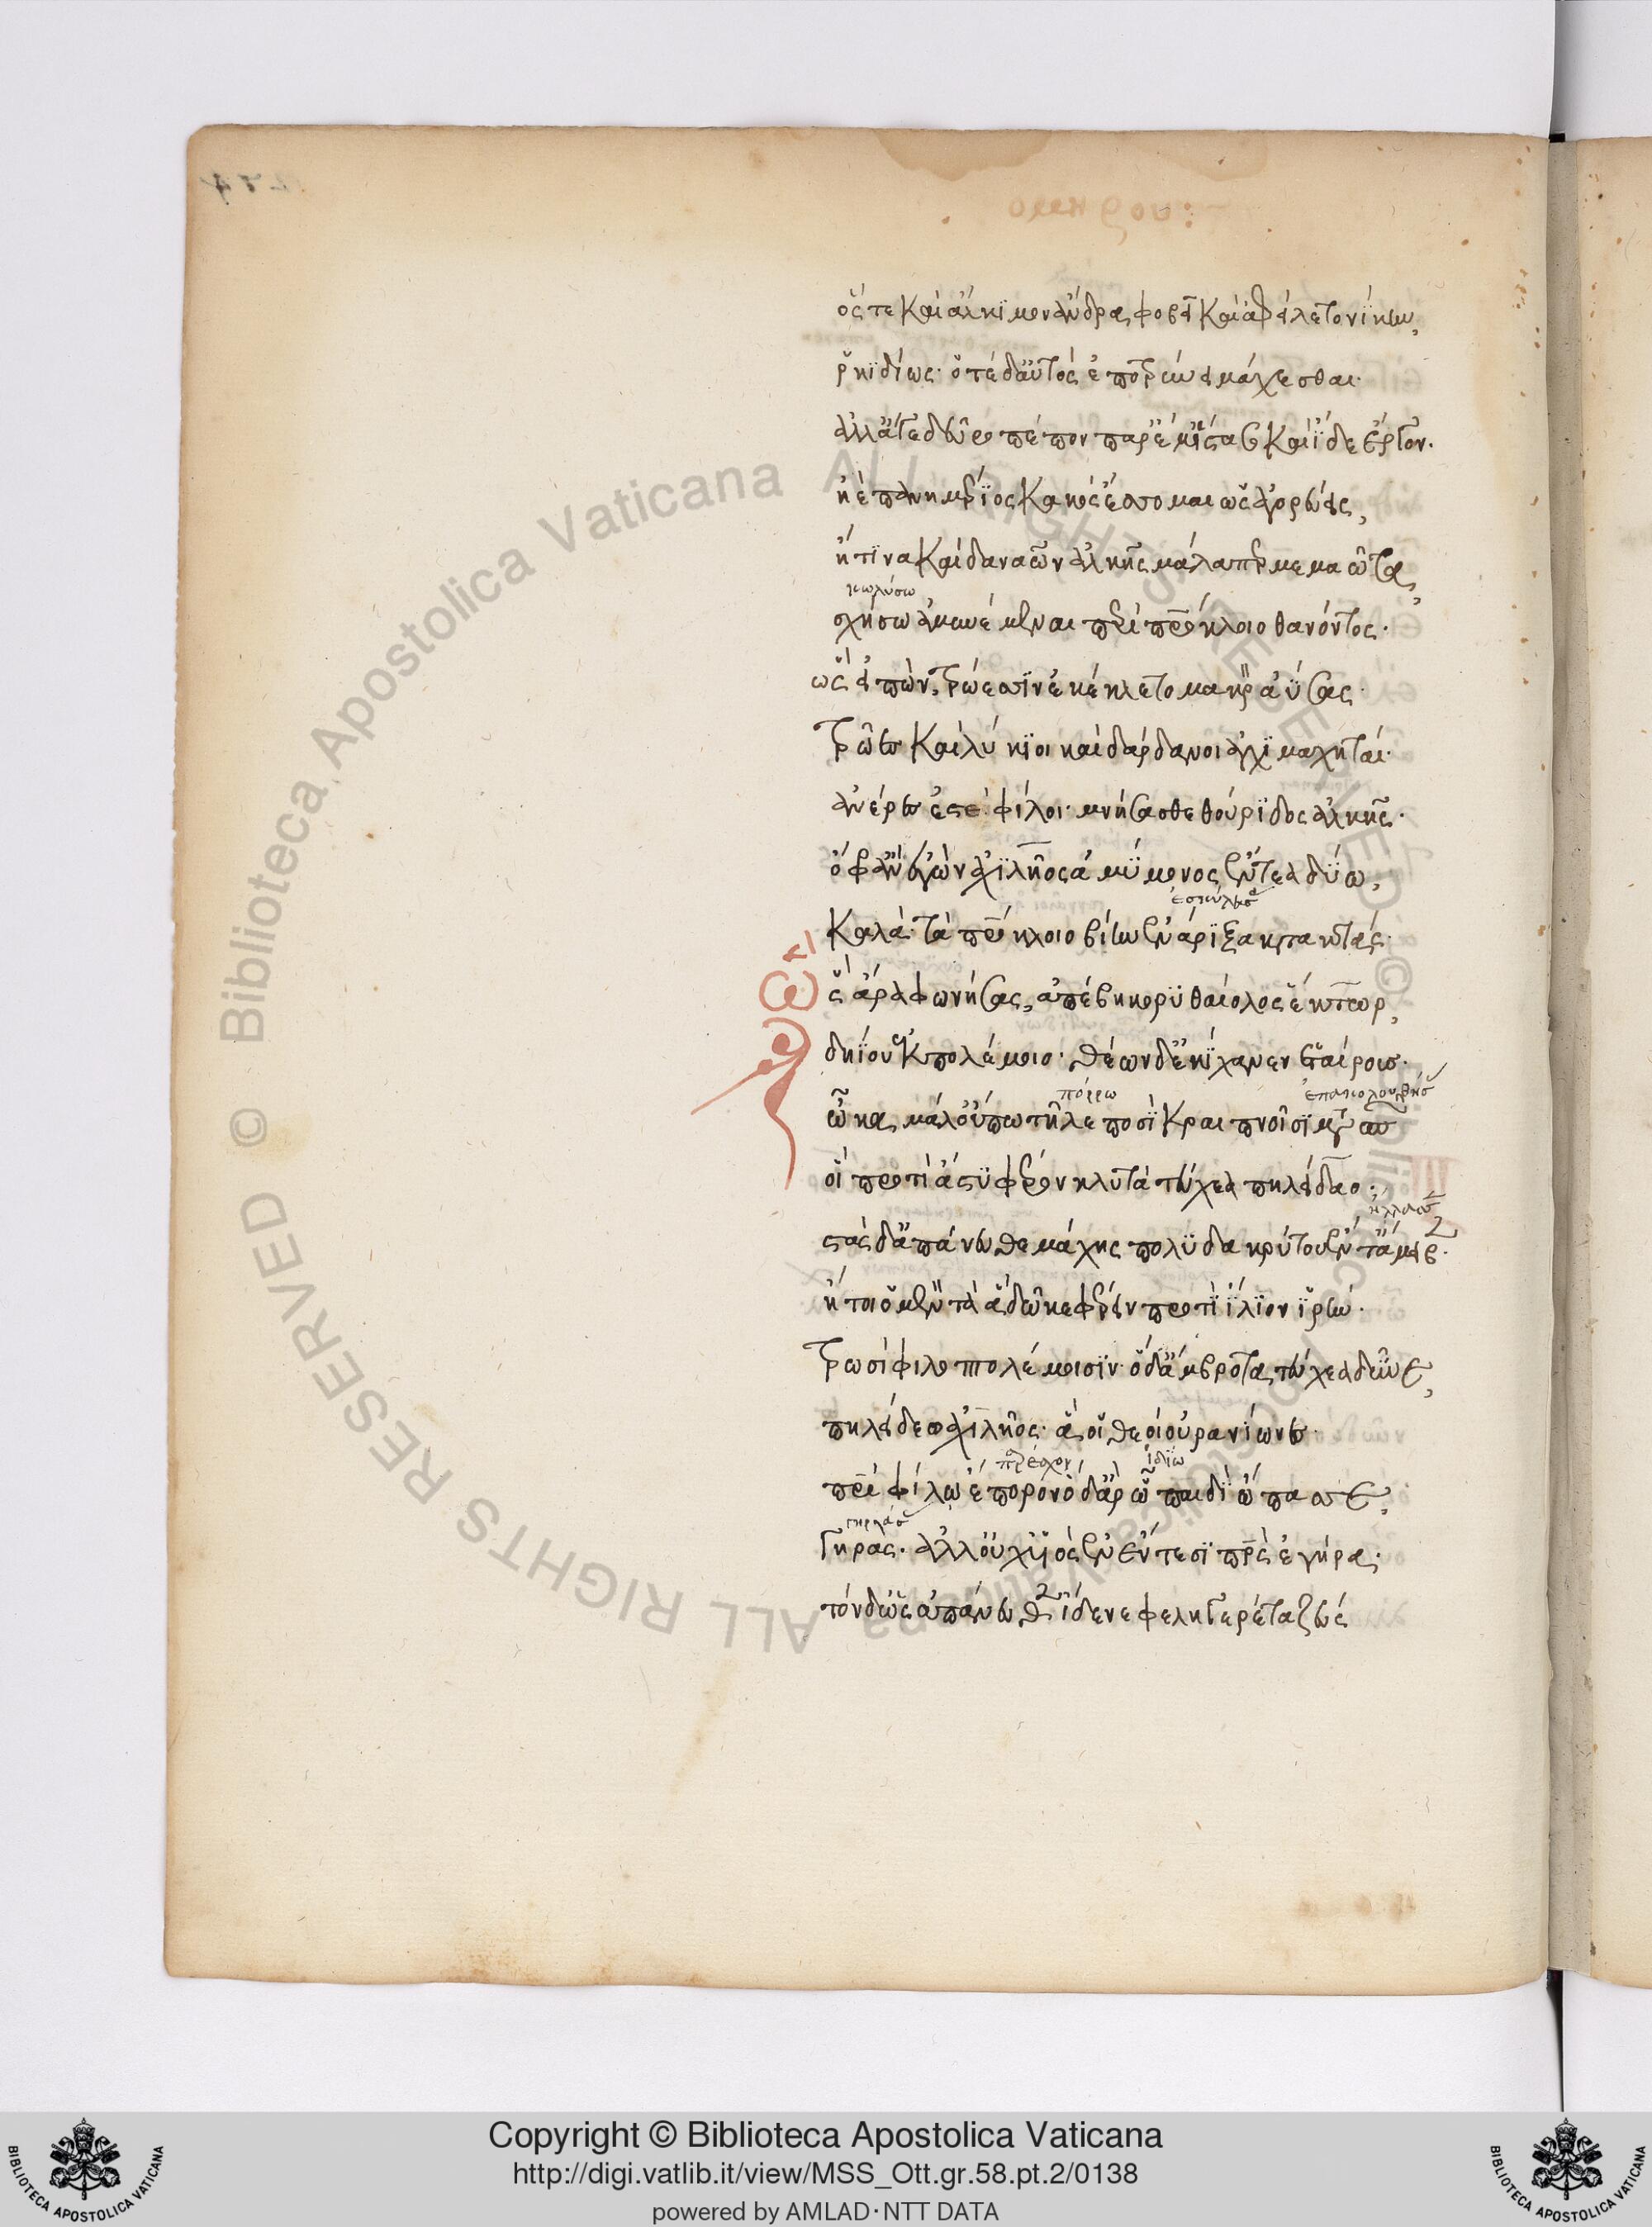 ὅς τε καὶ ἄλκιμον ἄνδρα φοβεῖ καὶ ἀφείλετο νίκην,
ῥηϊδίως· ὁτὲ δ' αὐτὸς ἐποτρύνει μάχεσθαι·
ἀλλ' ἄγε δεῦρο πέπον παρ' ἔμ' ἵστασο καὶ ἴδε ἔργον·
ἠὲ πανημέριος κακὸς ἔσσομαι ὡς ἀγορεύεις,
ἤ τινα καὶ δαναῶν ἀλκῆς μάλα περ μεμαῶτα,
κωλύσω
σχήσω ἀμυνέμεναι περὶ πατρόκλοιο θανόντος·
ὣς εἰπὼν, τρώεσσιν ἐκέκλετο μακρὸν ἀΰσας·
τρῶες καὶ λύκιοι καὶ δάρδανοι ἀγχιμαχηταί·
ἀνέρες ἔστε φίλοι· μνήσασθε θούριδος ἀλκῆς·
ὄφρ' ἂν ἐγὼν ἀχιλῆος ἀμύμονος ἔντεα δύω,
ἐσκύλευσα
καλά· τὰ πατρόκλοιο βίην ἐνάριξα κατακτάς·
ὣς ἄρα φωνήσας, ἀπέβη κορυθαίολος ἕκτωρ,
δηΐου ἐκ πολέμοιο· θέων δ' ἐκίχανεν ἑταίρους·
πόρρω ἐπακολουθήσας
ὦκα μάλ' οὔπω τῆλε ποσὶ κραιπνοῖσι μετασπών
οἳ προτὶ ἄστυ φέρον κλυτὰ τεύχεα πηλείδαο·
ἤλλασσε
στὰς δ' ἀπάνευθε μάχης πολυδακρύτου ἔντε' ἄμειβεν·
ἤτοι ὃ μὲν τὰ ἃ δῶκε φέρειν προτὶ ἴλιον ἱρὴν·
τρωσὶ φιλοπτολέμοισιν· ὁ δ' ἄμβροτα τεύχεα δῦνε,
πηλείδεω ἀχιλῆος· ἅ οἱ θεοὶ οὐρανίωνες·
παρέσχον ἰδίῳ
πατρὶ φίλῳ ἔπορον ὁ δ' ἄρ' ᾧ παιδὶ ὄπασσε,
γηράσας
γηράς· ἀλλ' οὐχ υἱὸς ἐν ἔντεσι πατρὸς ἐγήρα·
τὸν δ' ὡς ἀπάνευθεν ἴδε νεφεληγερέτα ζεύς
Copyright © Biblioteca Apostolica Vaticana
http://digi.vatlib.it/view/MSS_Ott.gr.58.pt.2/0138
powered by AMLAD·NTT DATA